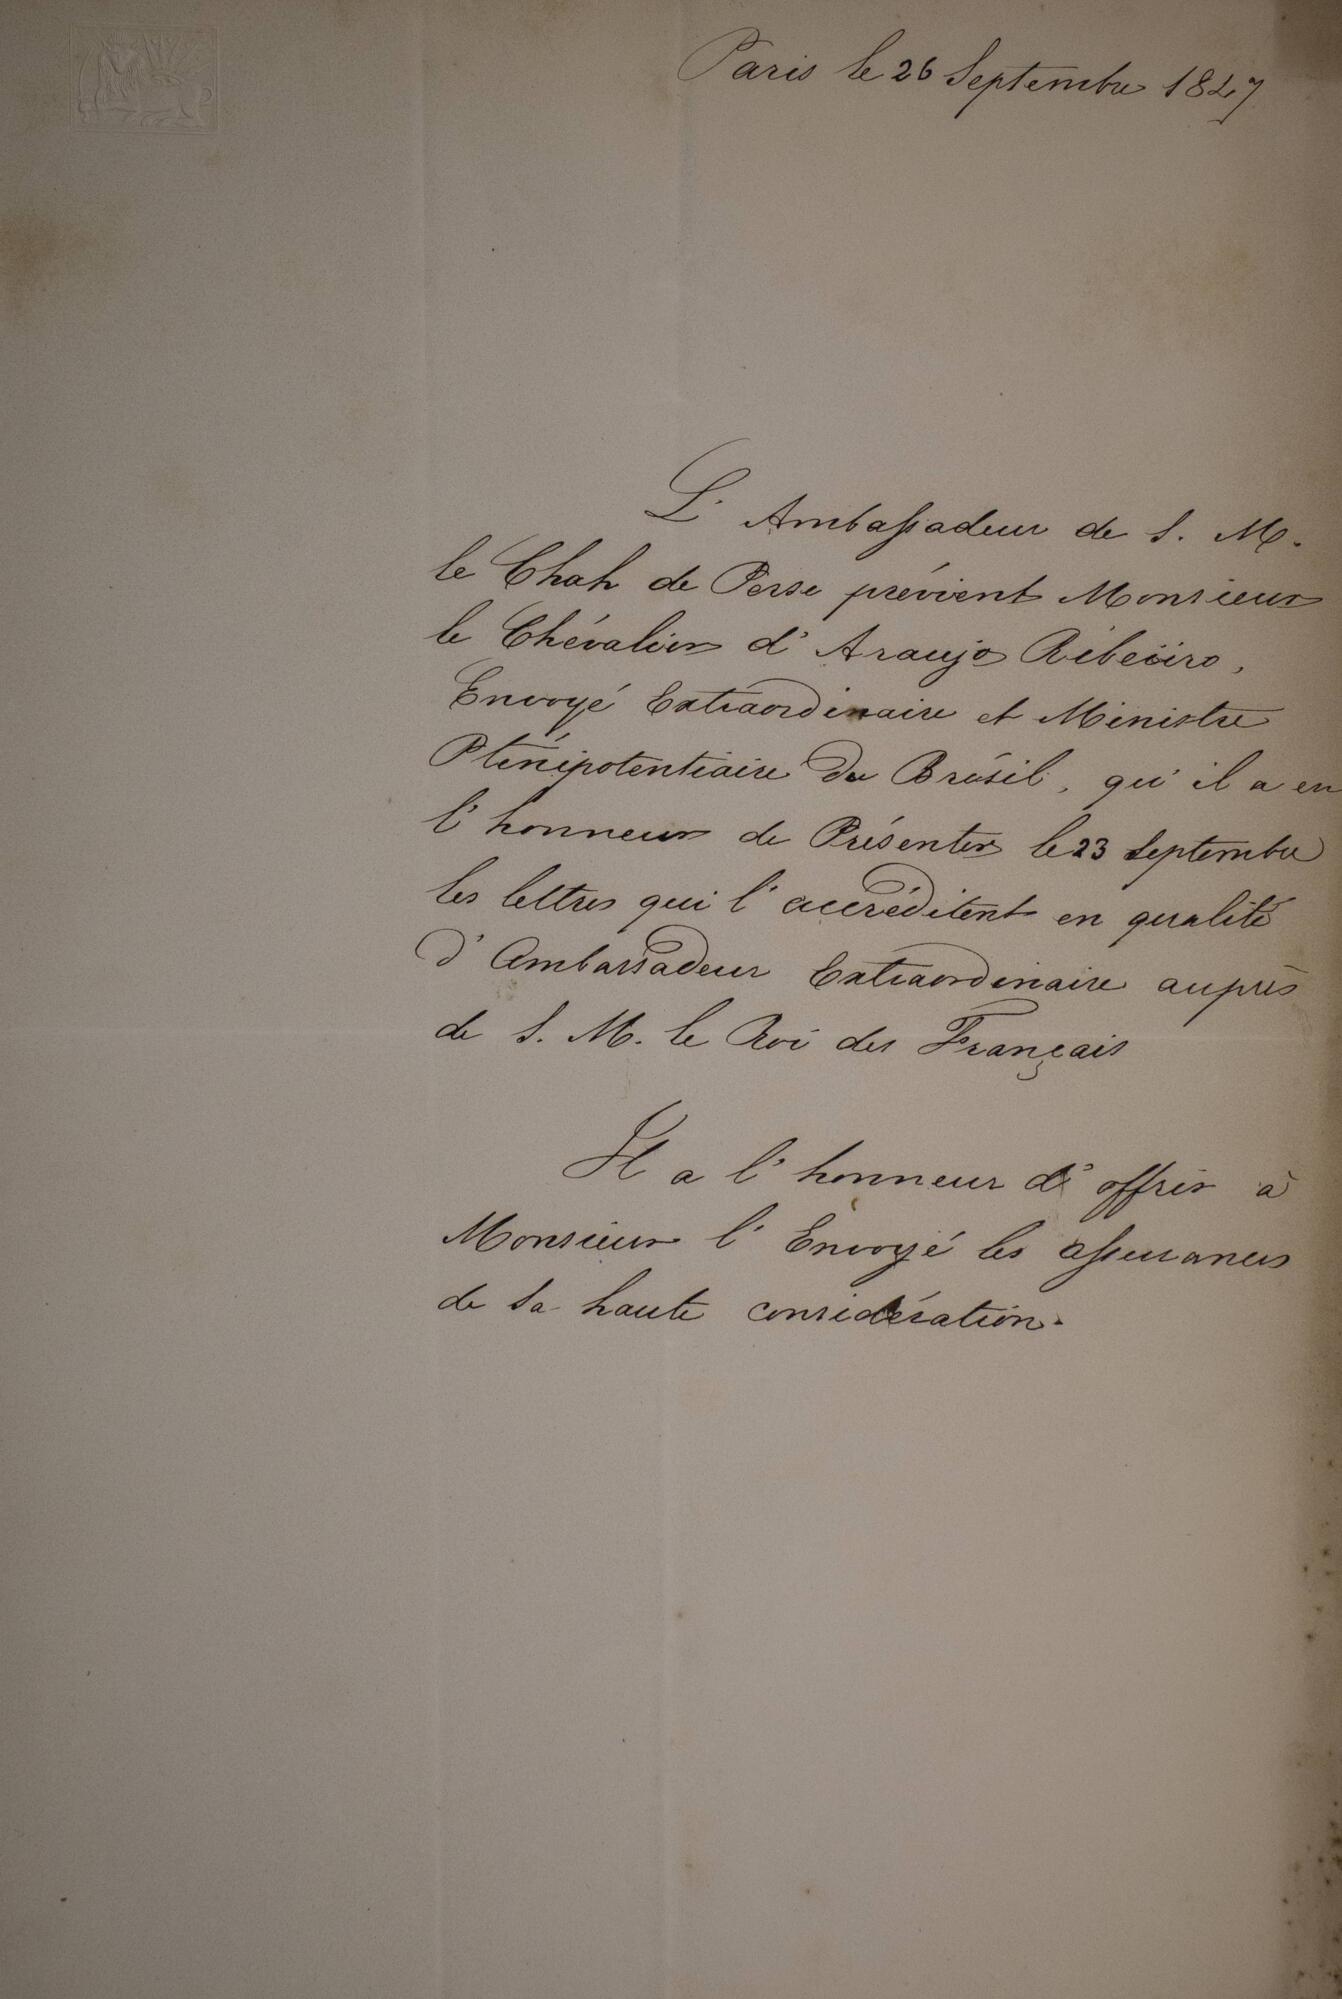 Paris le 26 Septembre 1847
L'Ambassadeur de S. M.
le Chah de Perse prévient Monsieur
le Chévalier d'Araujo Ribeïro,
Envoyé Extraordinaire et Ministre
Plénipotentiaire du Brésil, qu'il a eu
l'honneur de Présenter le 23 Septembre
les lettres qui l'accréditent en qualité
d'Ambassadeur Extraordinaire auprès
de S. M. le Roi des Français
Il a l'honneur d'offrir à
Monsieur l'Envoyé les assurances
de sa haute considération.